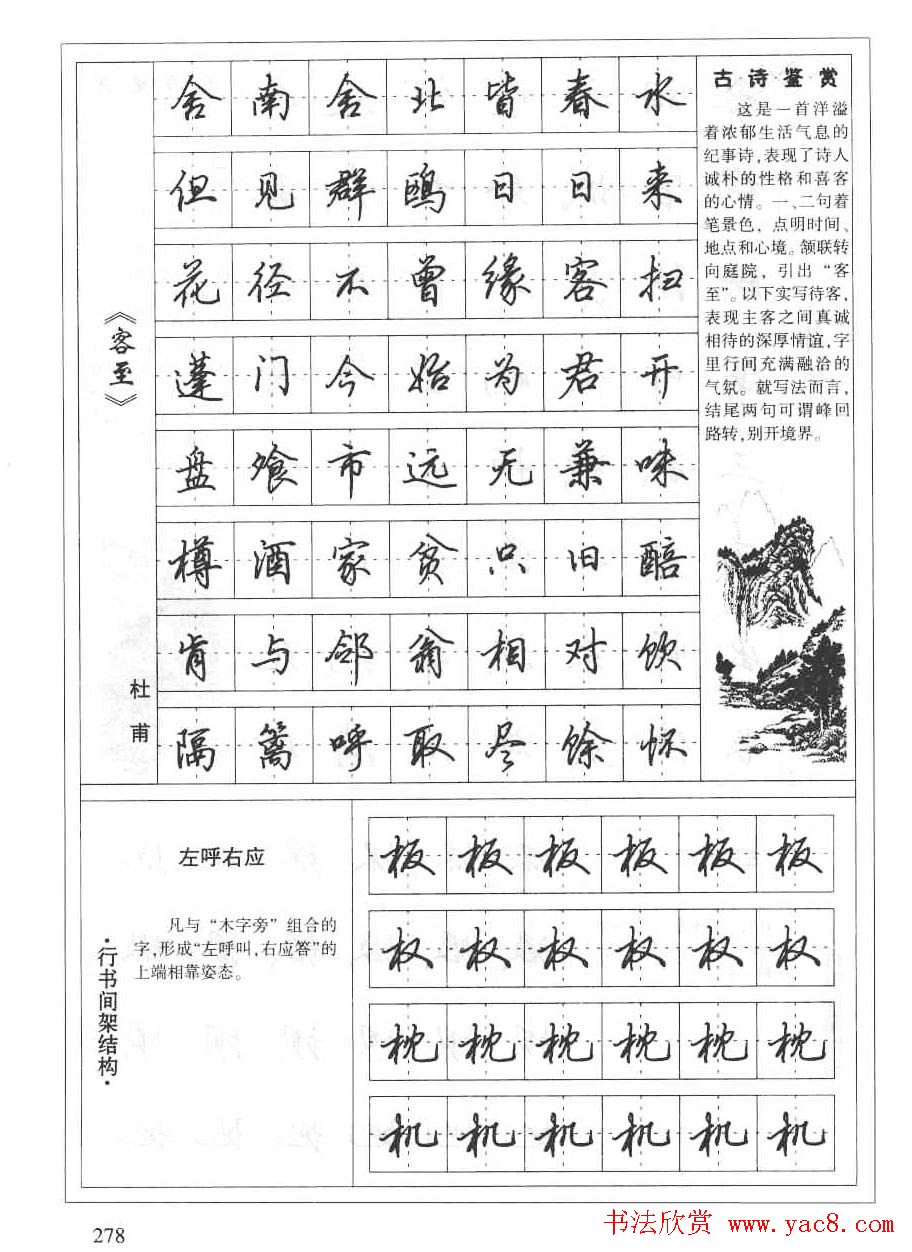 《客至》
杜甫
舍南舍北皆春水
但见群鸥日日来
花径不曾缘客扫
蓬门今始为君开
盘飧市远无兼味
樽酒家贫只旧醅
肯与邻翁相对饮
隔篱呼取尽馀杯
古诗鉴赏
这是一首洋溢
着浓郁生活气息的
纪事诗,表现了诗人
诚朴的性格和喜客
的心情。一、二句着
笔景色，点明时间、
地点和心境。颔联转
向庭院，引出“客
至”。以下实写待客,
表现主客之间真诚
相待的深厚情谊,字
里行间充满融洽的
气氛。就写法而言,
结尾两句可谓峰回
路转,别开境界。
·行书间架结构·
左呼右应
凡与“木字旁”组合的
字,形成“左呼叫,右应答”的
上端相靠姿态。
板板板板板板
权权权权权权
枕枕枕枕枕枕
机机机机机机
278
书法欣赏 www.yac8.com